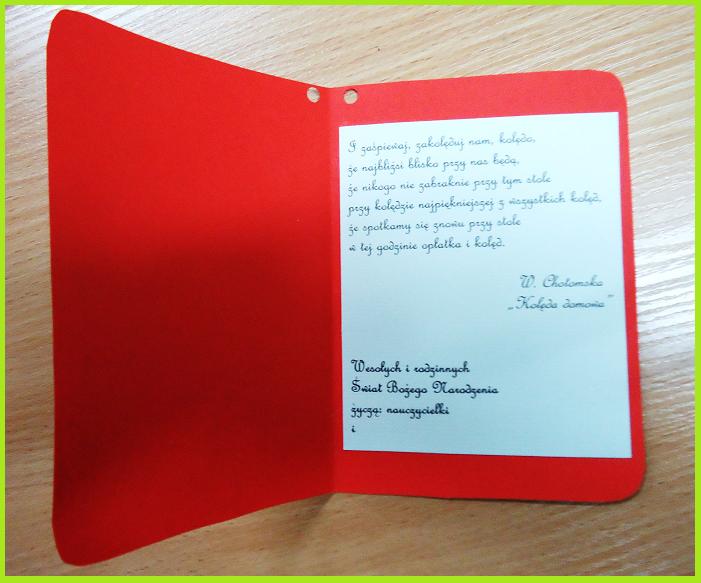 I zaśpiewaj, zakolęduj nam, kolędo,
że najbliżsi blisko przy nas będą,
że nikogo nie zabraknie przy tym stole
przy kolędzie najpiękniejszej z wszystkich kolęd,
że spotkamy się znowu przy stole
w tej godzinie opłatka i kolęd.
W. Chotomska
„Kolęda domowa”
Wesołych i rodzinnych
Świąt Bożego Narodzenia
życzą: nauczycielki
i